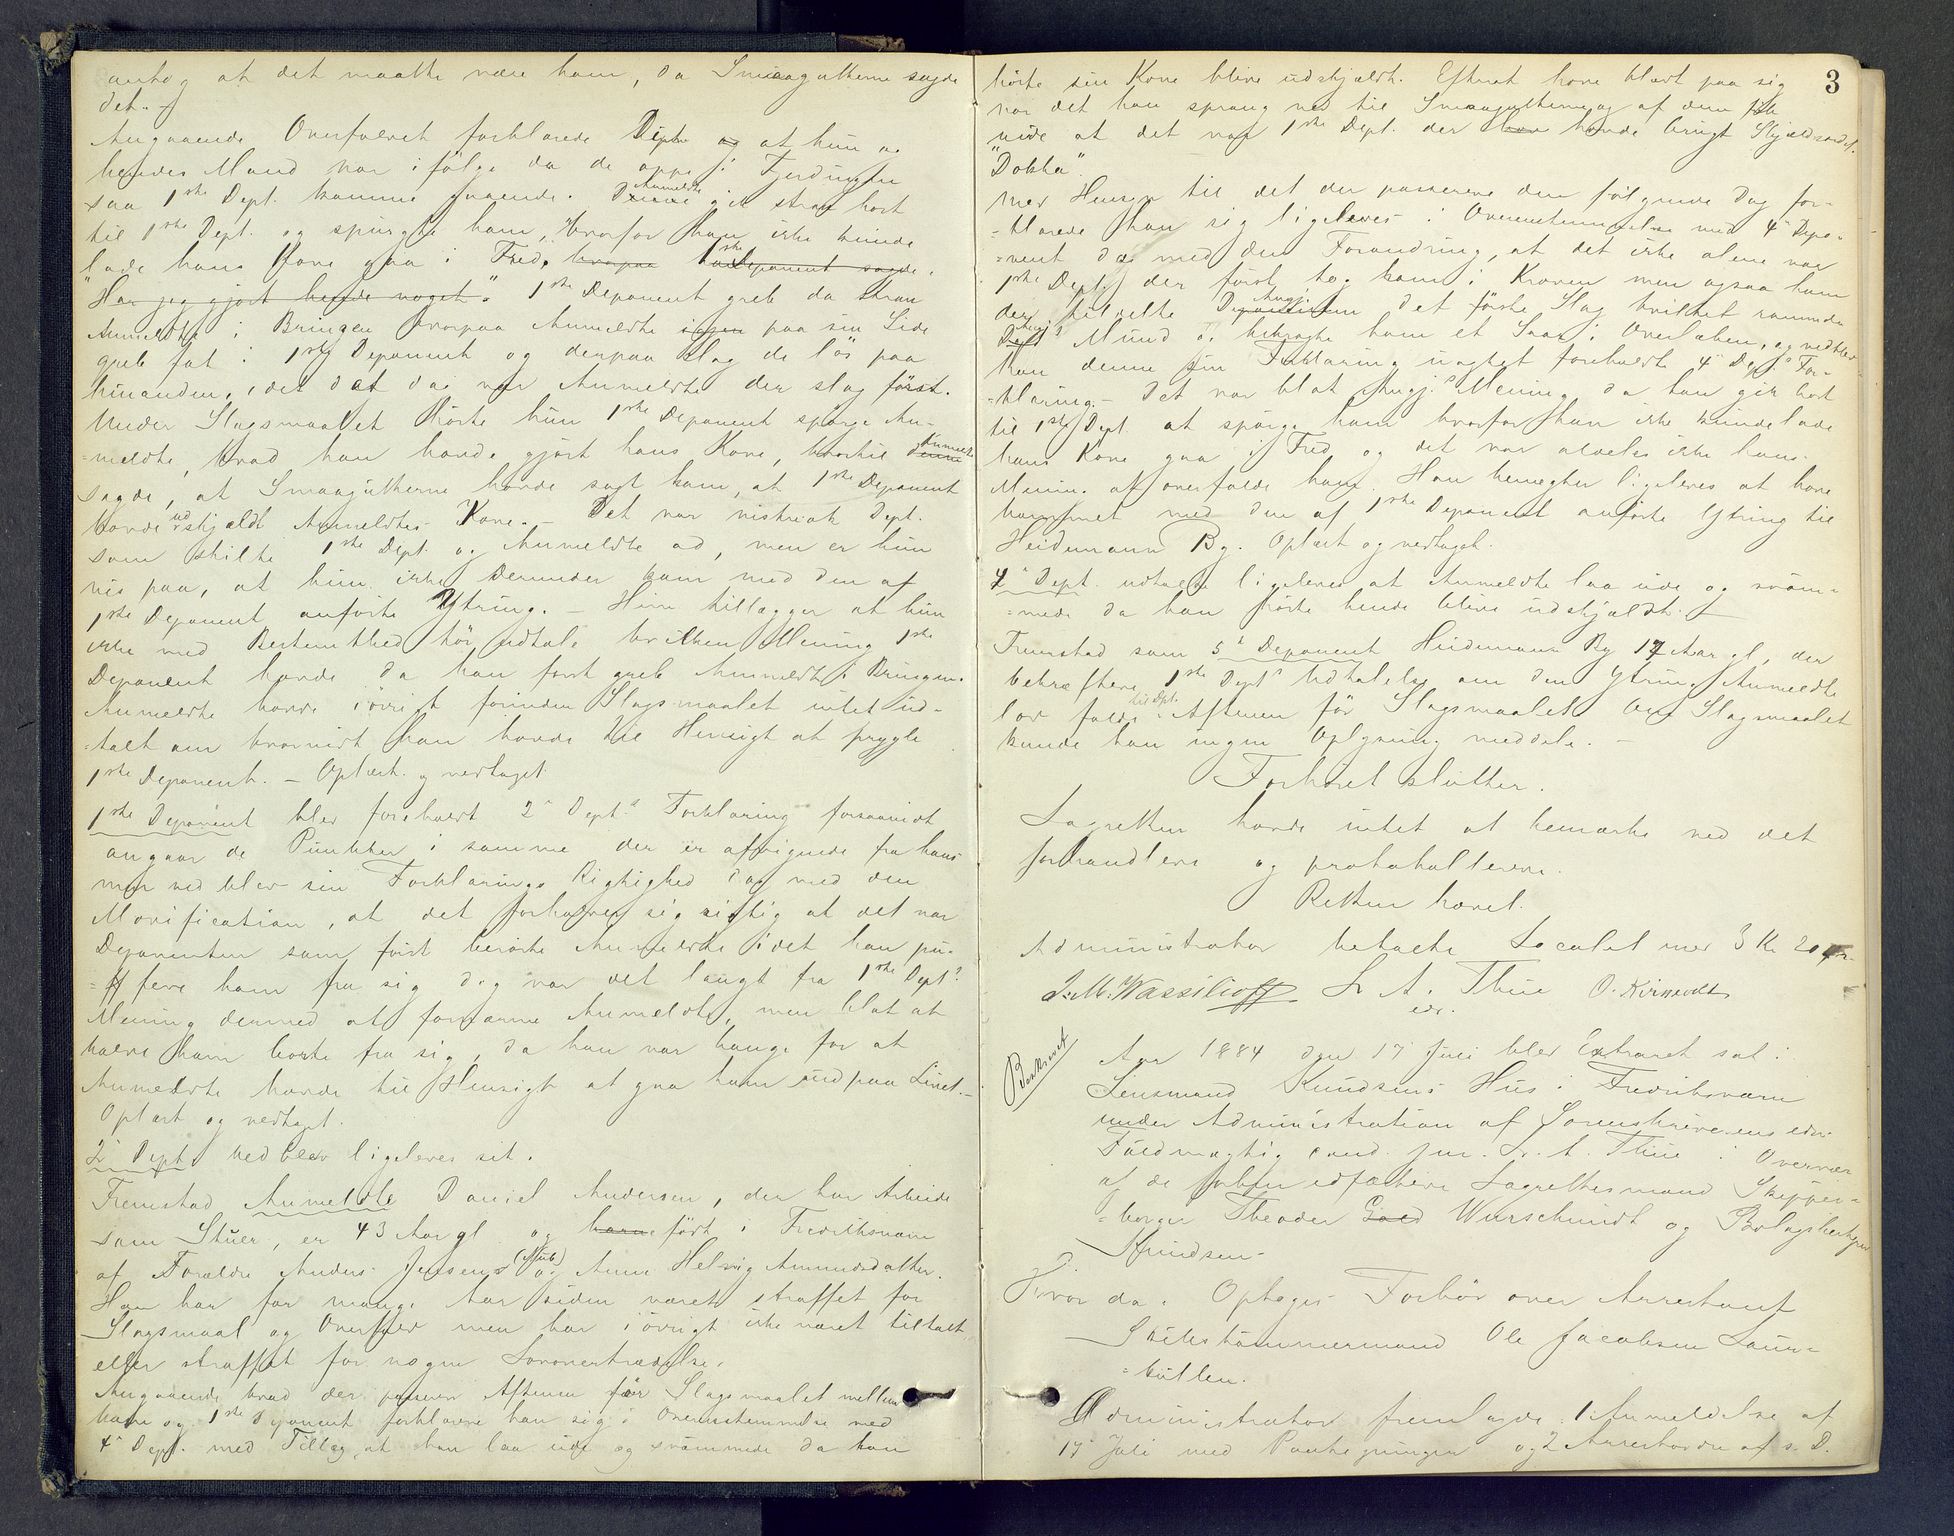 antog at det maatte være ham, da Smaagutterne sagde
det. -
Angaaende Overfaldet forklarede Dept. og at hun og
hendes Mand var i følge da de oppe i Fjerdingen
saa 1ste Dept. komme gaaende. Denne Anmeldte gik strax bort
til 1ste Dept. og spurgte ham, hvorfor han ikke kunde
lade hans Kone gaa i Fred, hvorpaa 1ste Deponent sagde.
"Har jeg gjort hende noget." 1ste Deponent greb da strax
Anmeldte i Bringen hvorpaa Anmeldte igjen paa sin Side
greb fat i 1ste Deponent og derpaa slog de løs paa
hinanden, idet dat da var Anmeldte der slog først.
Under Slagsmaalet hørte hun 1ste Deponent spørge An-
=meldte, hvad han havde gjort hans Kone, hvortil denne Anmeldte
sagde, at Smaagutterne havde sagt ham, at 1ste Deponent
havde udskjældt Anmeldtes Kone. - Det var vistnok Dept.
som skilte 1ste Dept. og Anmeldte ad, men er hun
vis paa, at hun ikke derunder kom med den af
1ste Deponent anførte Ytring. - Hun tillægger at hun
ikke med Bestemthed tør udtale hvilken Mening 1ste
Deponent havde da han først greb Anmeldte i Bringen.
Anmeldte havde iøvrigt forinden Slagsmaalet intet ud-
=talt om hvorvidt han havde til Hensigt at prygle
1ste Deponent. - Oplæst og vedtaget
1ste Deponent blev foreholdt 2den Depts Forklaring forsaavidt
angaar de Punkter i samme der er afvigende fra hans
men vedblev sin Forklarings Rigtighed dog med den
Modification, at det forholder sig rigtig at det var
Deponenten som først berørte Anmeldte idet han pu-
=ffede ham fra sig dog var det langt fra 1ste Depts
Mening dermed at fornærme Anmeldte, men blot at
holde ham borte fra sig, da han var bange for at
Anmeldte havde til Hensigt at gaa ham ind paa Livet. -
Oplæst og vedtaget.
2den Dept. vedblev ligeledes sit.
Fremstod Anmeldte Daniel Andersen, der har Arbeide
som Stuer, er 43 Aar gl. og barn født i Fredriksværn
af Forældre Anders Jensen (Mub) og Anne Helvig Amundsdatter.
Han har for mange Aar siden været straffet for
Slagsmaal og Overfald men har iøvrigt ikke været tiltalt
eller straffet for nogen Lovovertrædelse.
Angaaende hvad der passerede Aftenen før Slagsmaalet mellem
ham og 1ste Deponent forklarede han sig i Overensstemmelse med
4de Dept. med Tillæg, at han laa ude og svømmede da han
3
hørte sin Kone blive udskjældt. Efterat have klædt paa sig
var det han sprang ned til Smaagutterne og af dem fik
vide at det var 1ste Dept. der har havde brugt Skjældsordet.
"Dokka".
Med Hensyn til det der passerede den følgende Dag for-
=klarede han sig ligeledes i Overensstemmelse med 4de Depo-
=nent dog med den Forandring, at det ikke alene var
1ste Dept. der først tog ham i Kraven men ogsaa ham
der tildelte Deponenten Angj. det første Slag hvilket rammede
Depts Angj.s Mund og bibragte ham et Saar i Overlæben, og vedblev
han denne sin Forklaring uagtet foreholdt 4de Depts For-
=klaring. - Det var blot Angj.s Mening da han gik bort
til 1ste Dept. at spørge ham hvorfor han ikke kunde lade
hans Kone gaa i Fred og det var aldeles ikke hans
Mening at overfalde ham. Han benægter ligeledes at have
kommet med den af 1ste Deponent anførte Ytring til
Heidemann By. Oplæst og vedtaget.
4de Dept. udtalte ligeledes at Anmeldte laa ude og svøm-
=mede da han hørte hende blive udskjældt. -
Fremstod som 5te Deponent Heidemann By 17 Aar gl, der
bekræftede 1ste Depts Udtalelse om den Ytring Anmeldte
lod falde til Dept. Aftenen før Slagsmaalet. Om Slagsmaalet
kunde han ingen Oplysning meddele. -
Forhøret slutter.
Lagretten havde intet at bemærke ved det
forhandlede og protokollerede.
Retten hævet.
Administrator betalte Localet med 3 Kr 20 Øre
J. M. Wassilioff L. A. Thue O. Kirsevoldt
edr.
Beskrevet
Aar 1884 den 17 Juli blev Extraret sat i
Lensmand Knudsens Hus i Fredriksværn
under Administration af Sorenskriverens edsv.
Fuldmægtig cand. jur. L. A. Thue i Overvær
af de forhen edfæstede Lagrettesmænd Skipper-
=borger Theodor Goed Wurschmidt og Bolagsbestyrer
Knudsen -
Hvor da: Optoges Forhør over Arrestant
Skibstømmermand Ole Jacobsen Laur-
=kullen.
Administrator fremlagde 1 Anmeldelse af
17 Juli med Paategninger og 2 Arrestordre af s. D.